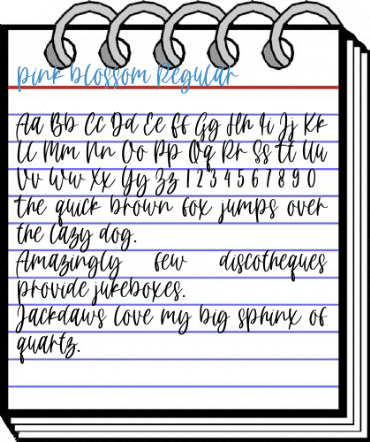 pink blossom Regular
Aa Bb Cc Dd Ee Ff Gg Hh Ii Jj Kk
Ll Mm Nn Oo Pp Qq Rr Ss Tt Uu
Vv Ww Xx Yy Zz 1 2 3 4 5 6 7 8 9 0
the quick brown fox jumps over
the lazy dog.
Amazingly few discotheques
provide jukeboxes.
Jackdaws love my big sphinx of
quartz.